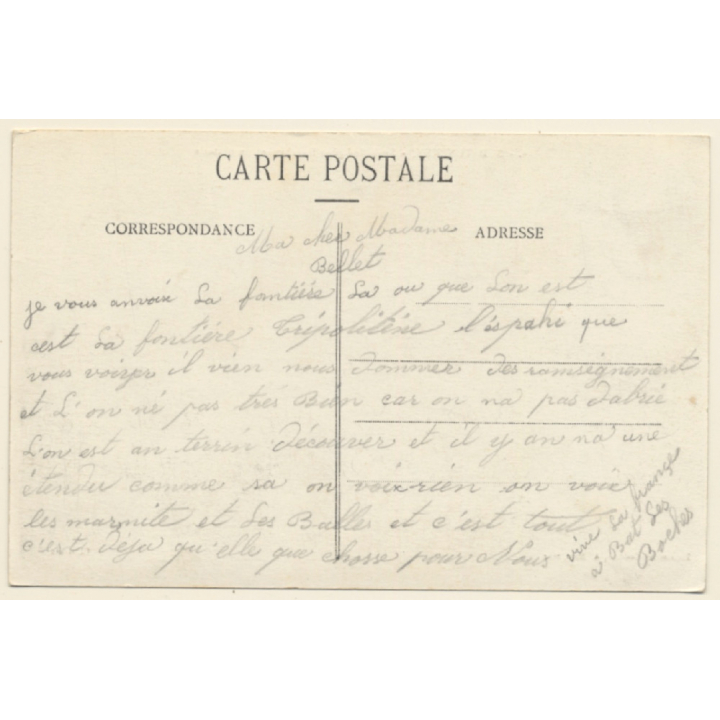 CARTE POSTALE
CORRESPONDANCE
ADRESSE
Ma cher Madame
Bellet
je vous anvoir La fontière La ou que Lon est
cest La fontiére Tripolitène l'éspahi que
vous voiser il vien nous dommer des ramseignement
et L'on né pas trés Bien car on na pas dabrie
L'on est an terrin découver et il y an na une
étendu comme sa on voix rien on voie
les marmite et Les Balle et c'est tout
c'est déja qu'elle que chosse pour Nous
vive La france
à Bat Les
Boches